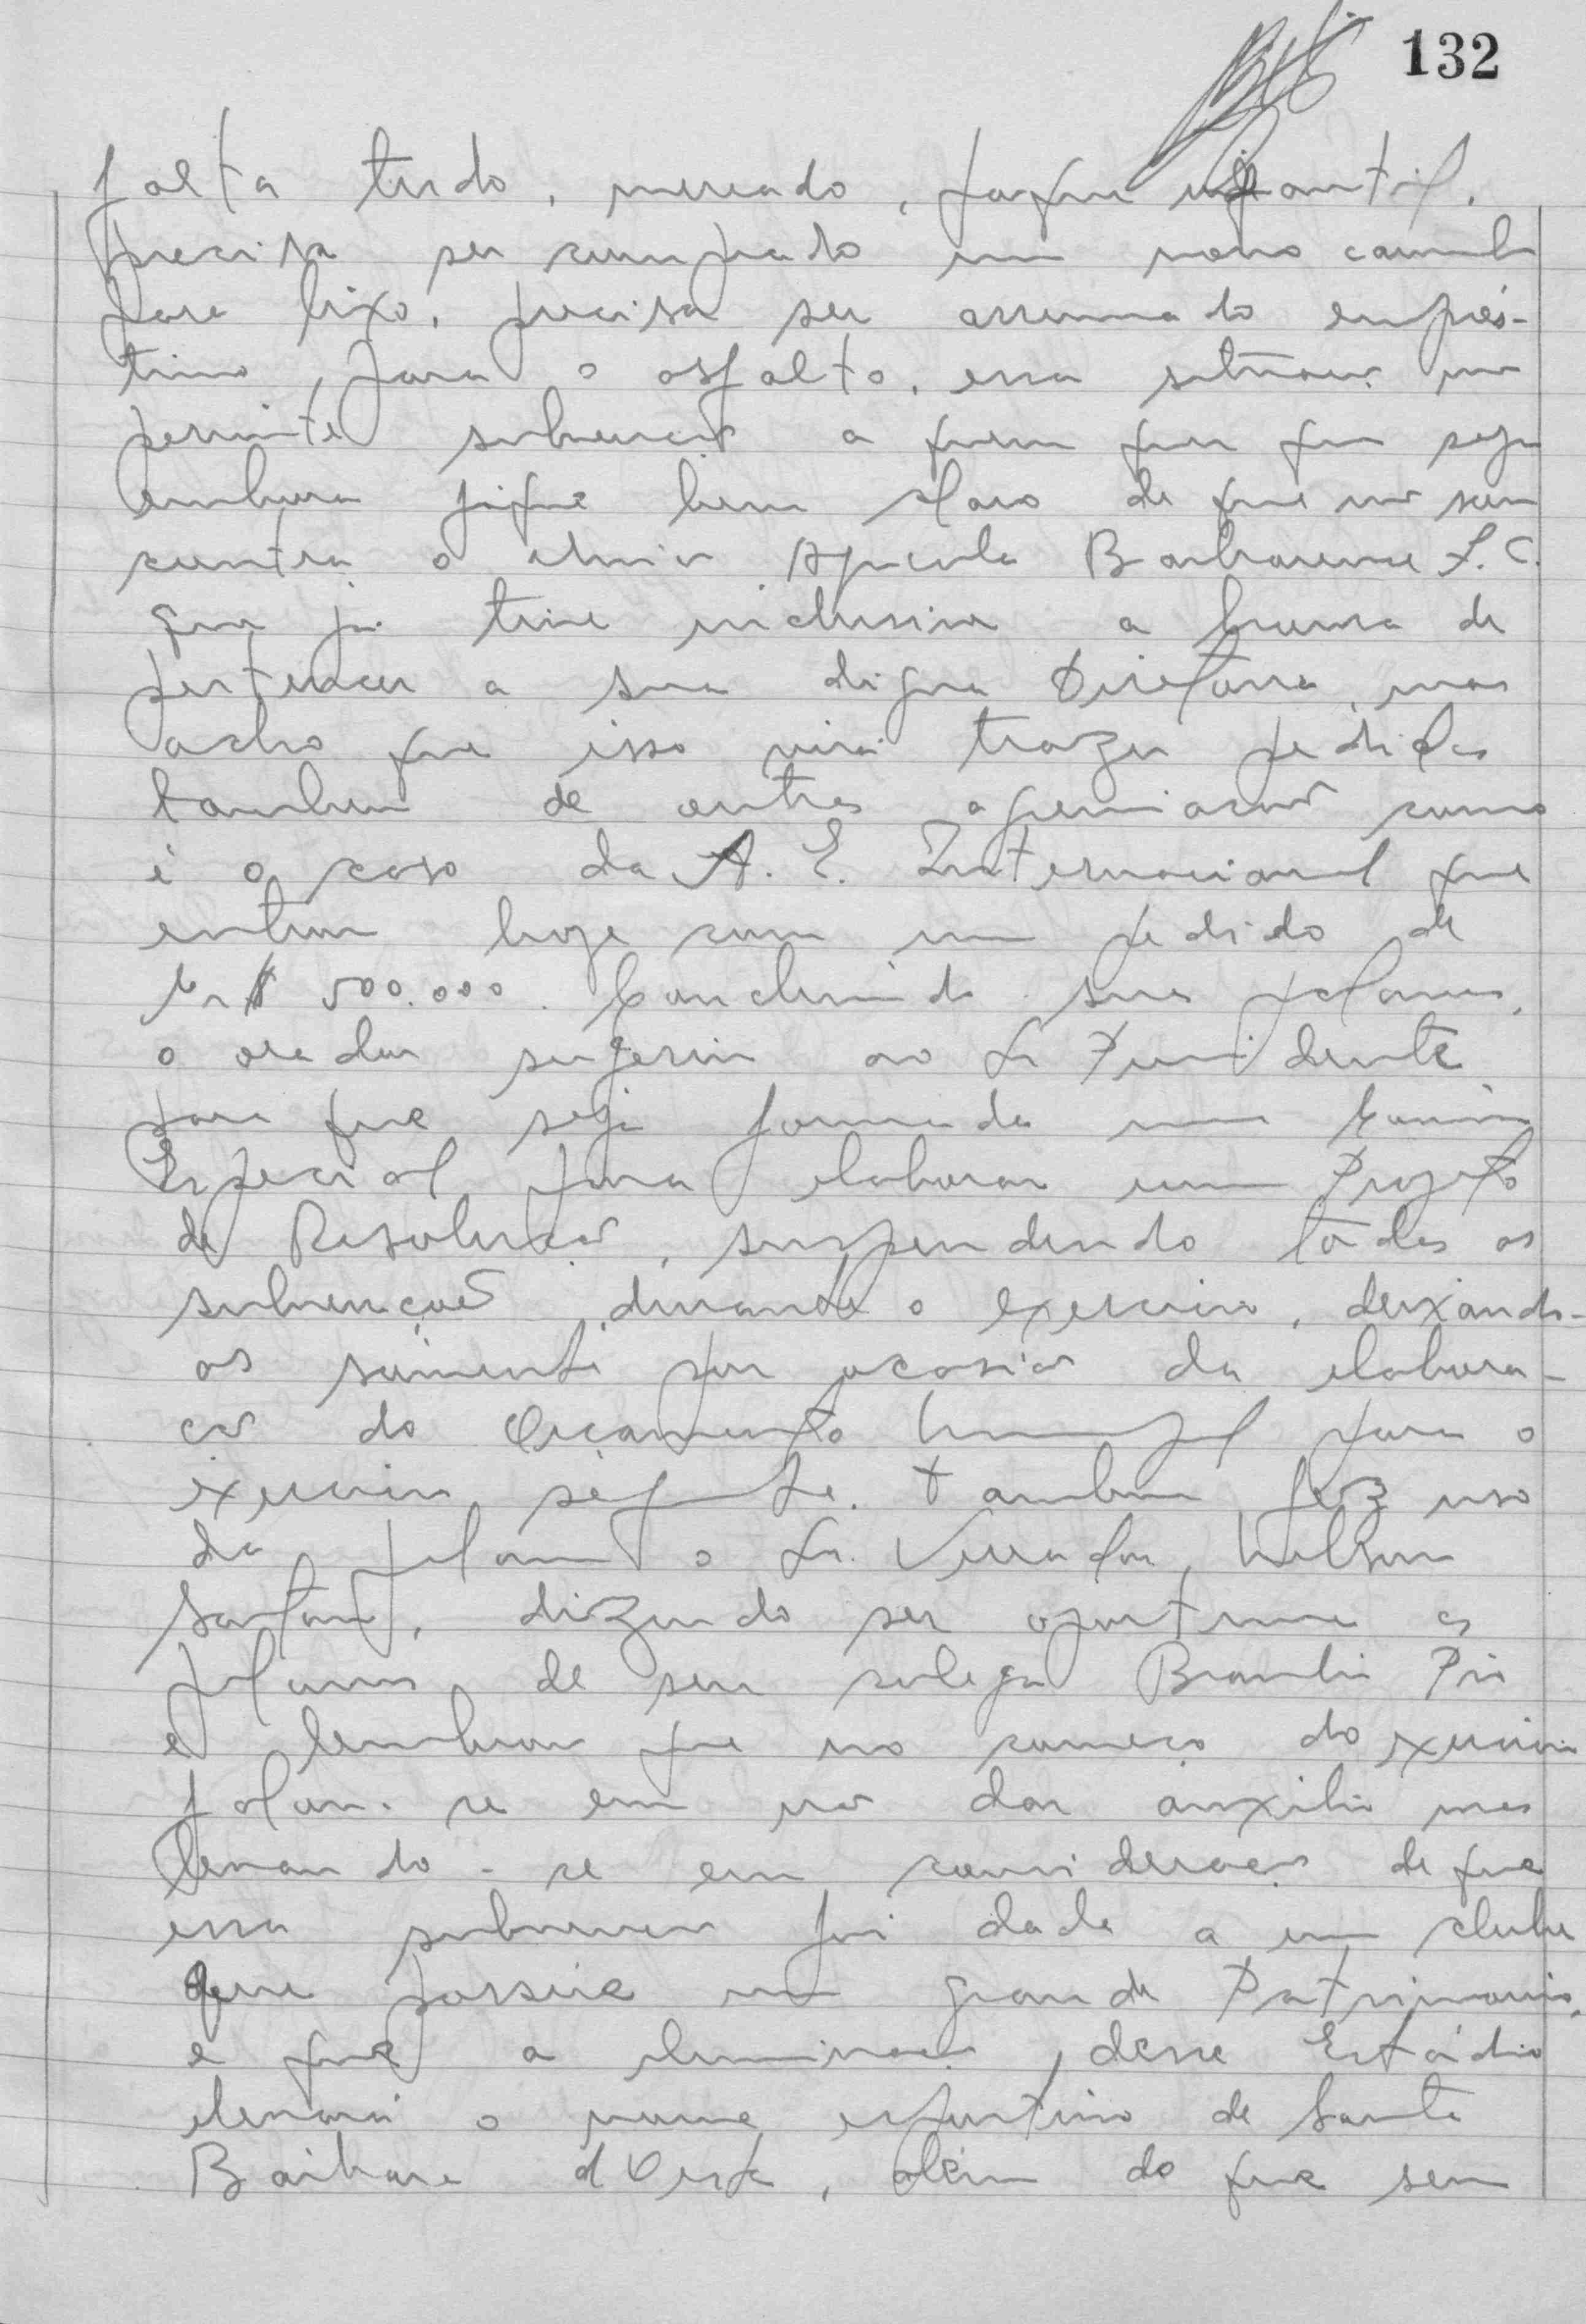 132
falta tudo, mercado, parque infantil,
precisa ser comprado um novo caminh
para lixo, precisa ser arrumado emprés-
timo para o asfalto, essa situação não
permite subvenção a quem quer que seja
embora fique bem claro de que não sou
contra o União Agrícola Barbarense F.C.
que já tive inclusive a honra de
pertencer a sua digna Diretoria, mas
acho que isso virá trazer pedidos
tambem de outras agremiações como
é o caso da A. E. Internacional que
entrou hoje com um pedido de
Cr$ 500.000. Concluindo suas palavras,
o orador sugeriu ao Sr Presidente
para que seja formada uma Comissão
Especial para elaborar um Projeto
de Resolução, suspendendo todas as
subvenções durante o exercicio, deixando-
as sòmente por ocasião da elabora-
ção do Orçamento Municipal para o
exercicio seguinte. Tambem fez uso
da palavra o Sr. Vereador,
dizendo ser oportuna as
palavras de seu colega
e lembrou que no começo do exercicio
falou-se em não dar auxilio mas
levando-se em consideração de que
essa subvenção foi dada a um clube
que possúe um grande Patrimonio,
e que a iluminação desse Estádio
elevará o nome esportivo de Santa
Bárbara d'Oeste, além do que seu